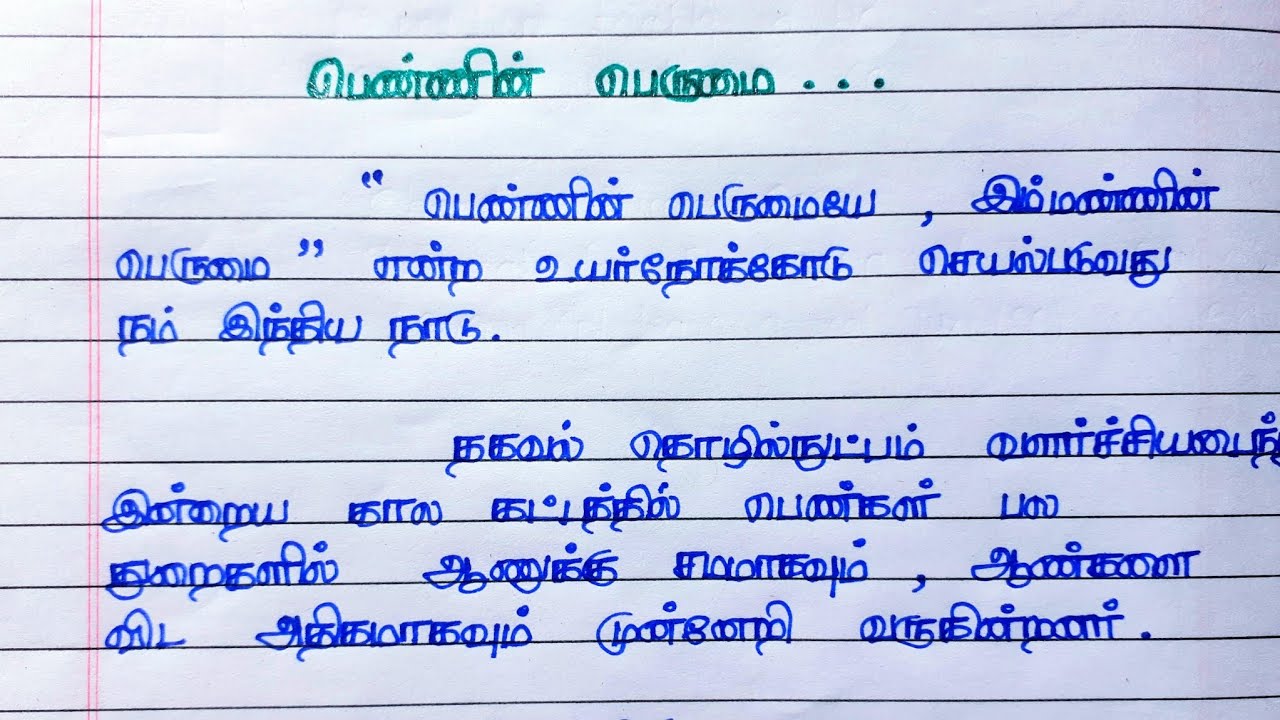 பெண்ணின் பெருமை . . .
“ பெண்ணின் பெருமையே , இம்மண்ணின்
பெருமை ” என்ற உயர்நோக்கோடு செயல்படுவது
நம் இந்திய நாடு.
தகவல் தொழில்நுட்பம் வளர்ச்சியடைந்
இன்றைய கால கட்டத்தில் பெண்கள் பல
துறைகளில் ஆணுக்கு சமமாகவும் , ஆண்களை
விட அதிகமாகவும் முன்னேறி வருகின்றனர் .